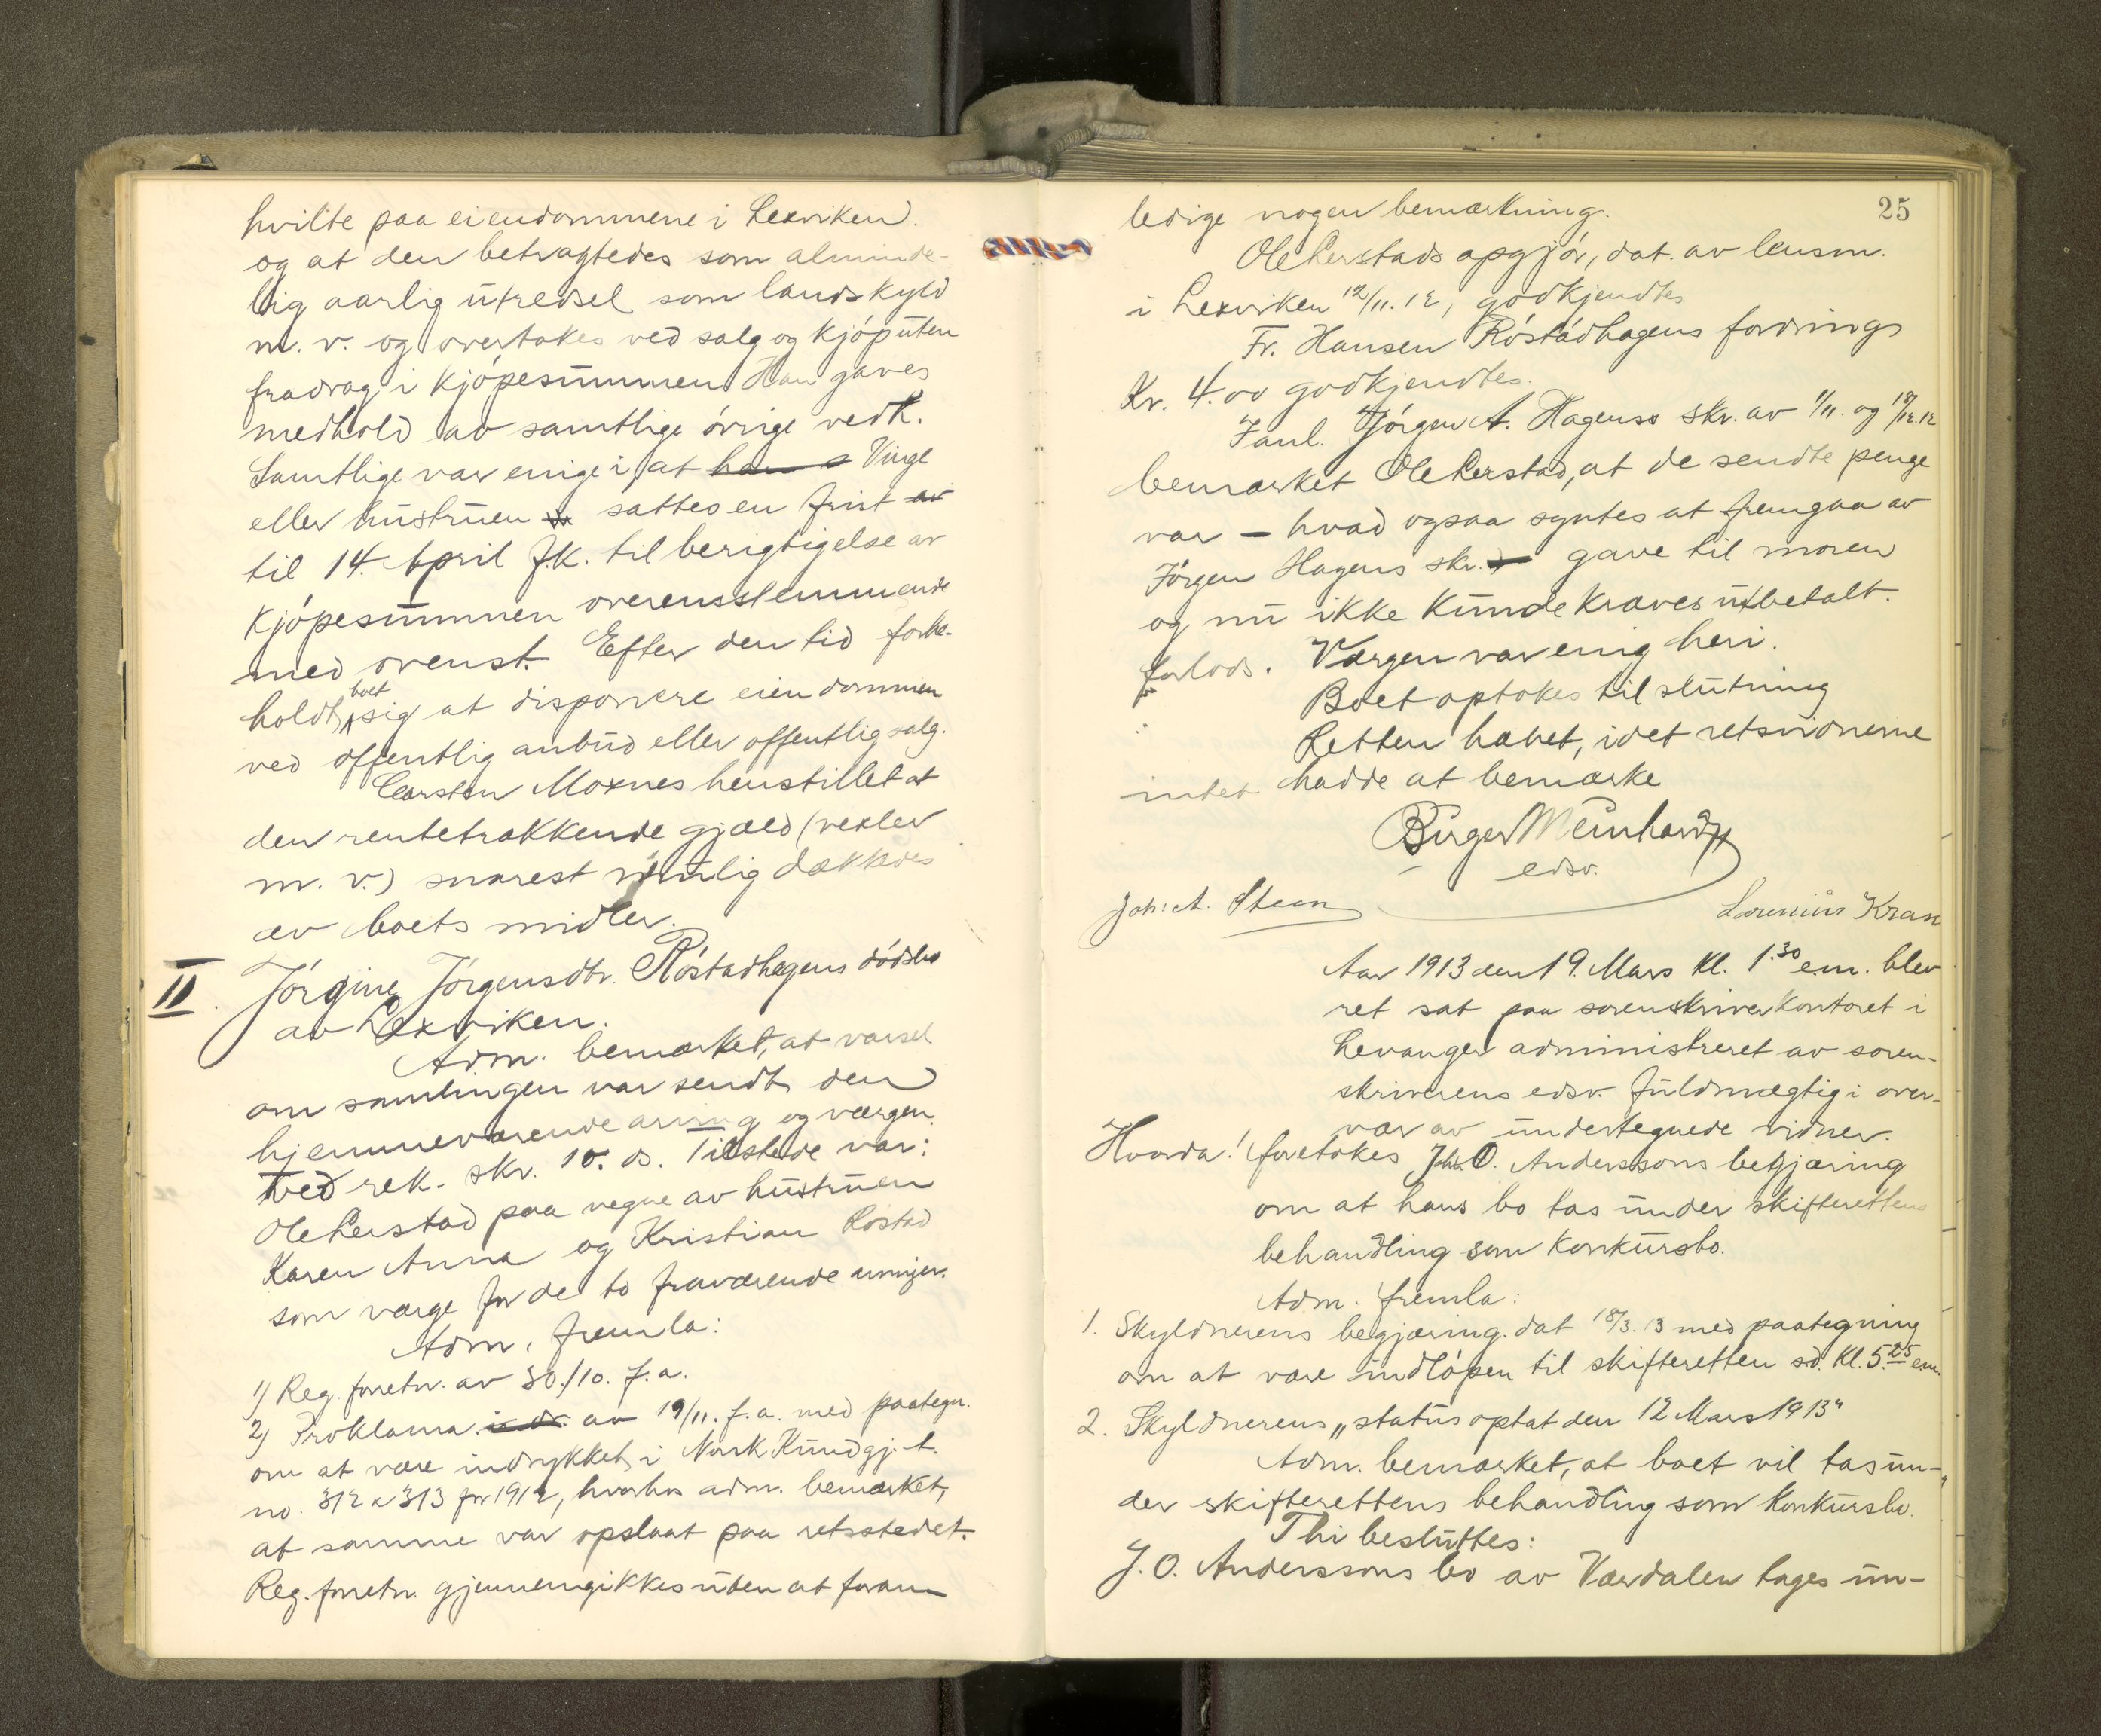 hvilte paa eiendommene i Lexviken
og at den betragtedes som alminde-
lig aarlig utredsel som landskyld
m. v. og overtakes ved salg og kjøp uten
fradrag i kjøpesummen Han gaves
medhold av samtlige øvrige vedk.
Samtlige var enige i, at Vinge
eller hustruen sattes en frist
til 14. April f.k. til berigtigelse av
kjøpesummen overensstemmende
med ovenst. Efter den tid forbe-
holdt boet sig at disponere eiendommen
ved offentlig anbud eller offentlig salg.
Carsten Moxnes henstillet at
den rentetrækkende gjæld (vexler
m. v.) snarest mulig dækkes
av boets midler.
II. Jørgine Jørgensdtr. Røstadhagens dødsbo
av Lexviken.
Adm. bemærket, at varsel
om samlingen var sendt den
hjemmeværende arving og værgen
ved rek. skr. 10. ds. Tilstede var:
Ole Lerstad paa vegne av hustruen
Karen Anna og Kristian Rostad
som værge for de to fraværende arvinger.
Adm. fremla:
1) Reg. forretn. av 30./10. f.a.
2) Proklama av 19/11. f.a. med paategn.
om at være indrykket i Norsk Kundgj. t.
no. 312 & 313 for 1912, hvorhos adm. bemærket,
at samme var opslaat paa retsstedet.
Reg. forretn. gjennemgikkes uten at foran-
25
ledige nogen bemærkning.
Ole Lerstads opgjør, dat. av lensm.
i Lexviken 12/11. 12, godkjendtes
Fr. Hansen Røstadhagens fordrings
Kr. 4.00 godkjendtes.
Jørgen A. Hagens skr. av 1/11. og 18/12.12
bemærket Ole Lerstad, at de sendte penge
var – hvad ogsaa syntes at fremgaa av
Jørgen Hagens skr. gave til moren
og nu ikke kunde kræves utbetalt
forlods. Værgen var enig heri.
Boet optokes til slutning
Retten hævet, idet retsvidnerne
intet hadde at bemærke
Birger Meinhardt
edsv.
Joh: A. Steen
Lorenius Kran
Aar 1913 den 19. Mars Kl. 1.30 em. blev
ret sat paa sorenskriverkontoret i
Levanger administreret av soren-
skriverens edsv. fuldmægtig i over-
vær av undertegnede vidner.
Hvorda! foretokes Joh. O. Anderssons begjæring
om at hans bo tas under skifterettens
behandling som konkursbo.
Adm. fremla:
1. Skyldnerens begjæring. dat 18/3. 13 med paategning
om at være indløpen til skifteretten s.d. Kl. 5.25 em.
2. Skyldnerens „status optat den 12 Mars 1913"
Adm. bemærket, at boet vil tas un-
der skifterettens behandling som konkursbo.
Thi besluttes:
J. O. Anderssons bo av Værdalen tages un-